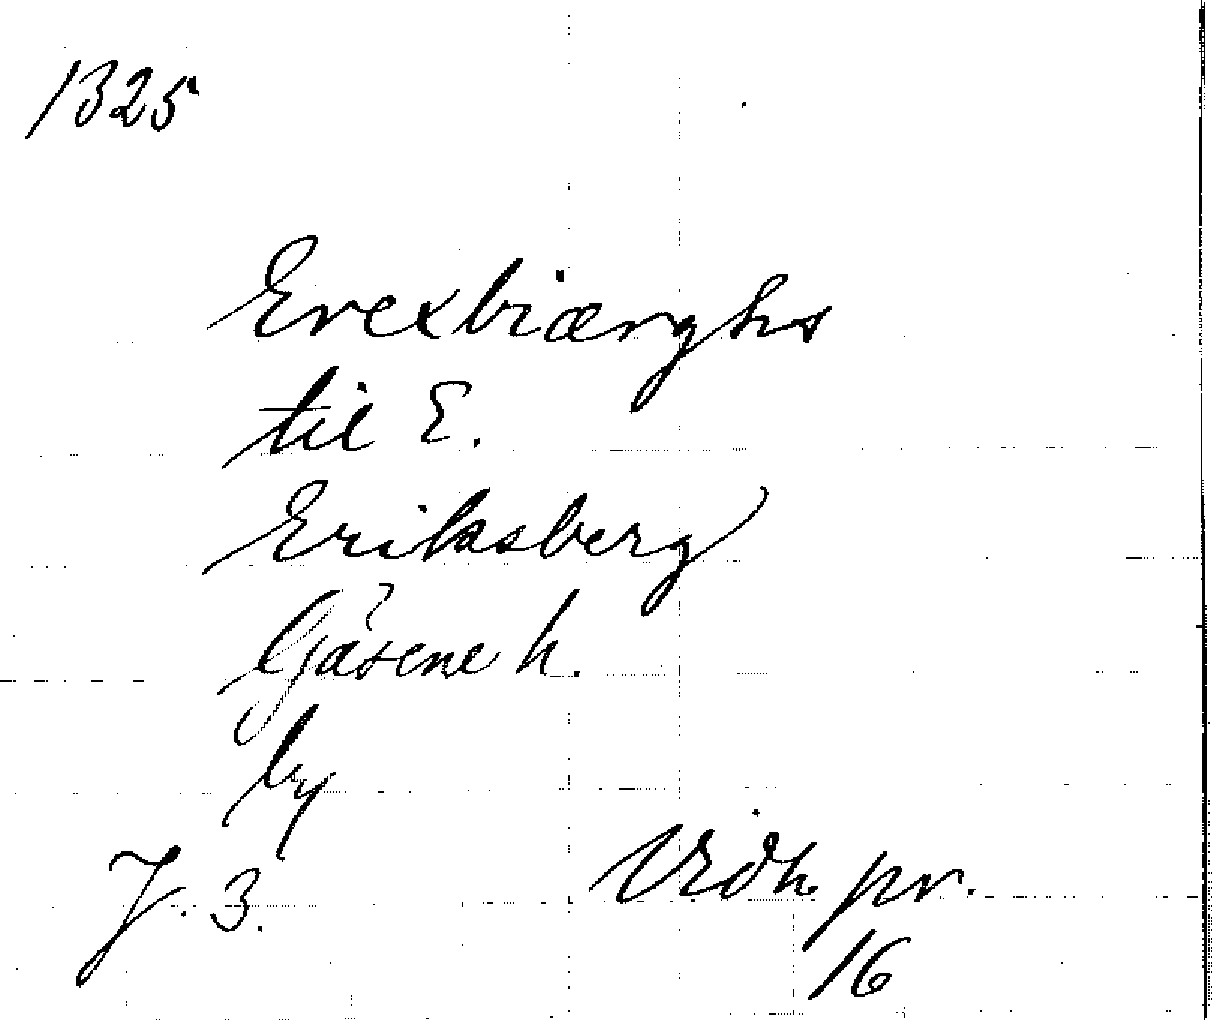 1325
Erexbiærghs
til E.
Eriksberg
Gäsene h.
by
J. 3. Vidh. pr.
16